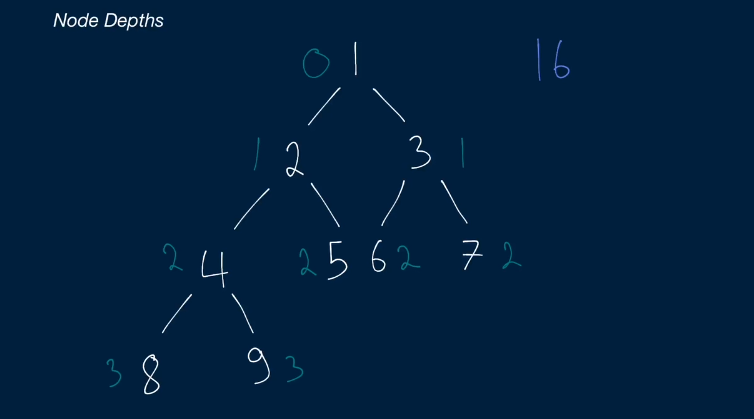 Node Depths
0 1 16
1 2 3 1
2 4 2 5 6 2 7 2
3 8 9 3